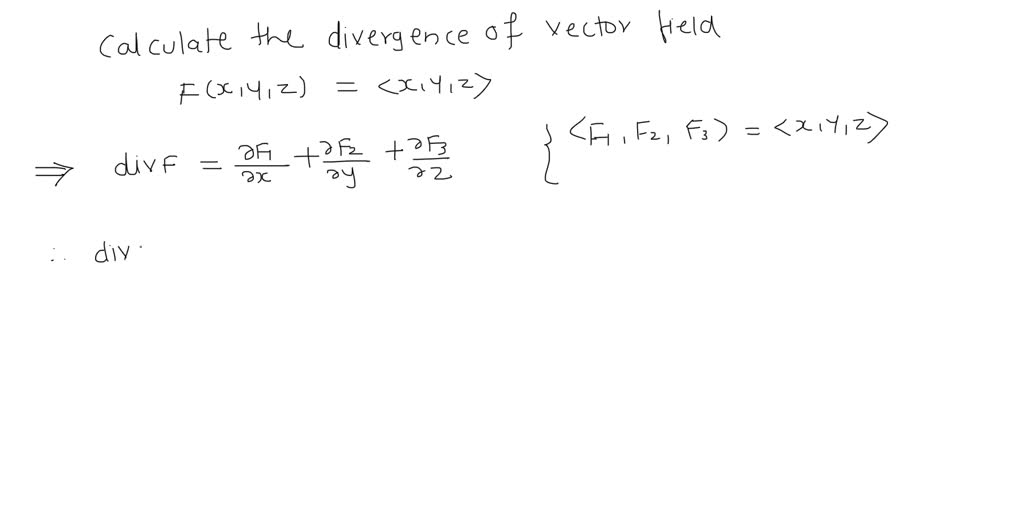 Calculate the divergence of vector field
F(x,y,z) = <x,y,z>
⇒ div F = ∂F₁/∂x + ∂F₂/∂y + ∂F₃/∂z { <F₁, F₂, F₃> = <x,y,z>
∴ div